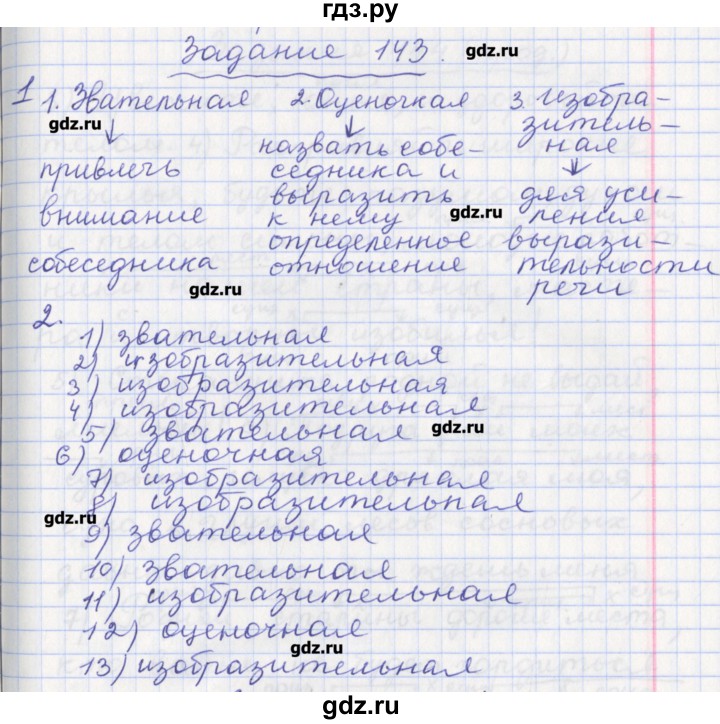 гдз.ру
Задание 143.
gdz.ru
1 1. Звательная 2. Оценочная 3. Изобра-
зитель-
ная
gdz.ru
привлечь
внимание
собеседника
назвать собе-
седника и
выразить
к нему
определенное
отношение
gdz.ru
для уси-
ления
вырази-
тельности
речи
gdz.ru
gdz.ru
2.
1) звательная
2) изобразительная
3) изобразительная
4) изобразительная
5) звательная
gdz.ru
6) оценочная
7) изобразительная
8) изобразительная
gdz.ru
9) звательная
10) звательная
11) изобразительная
12) оценочная
gdz.ru
13) изобразительная
gdz.ru